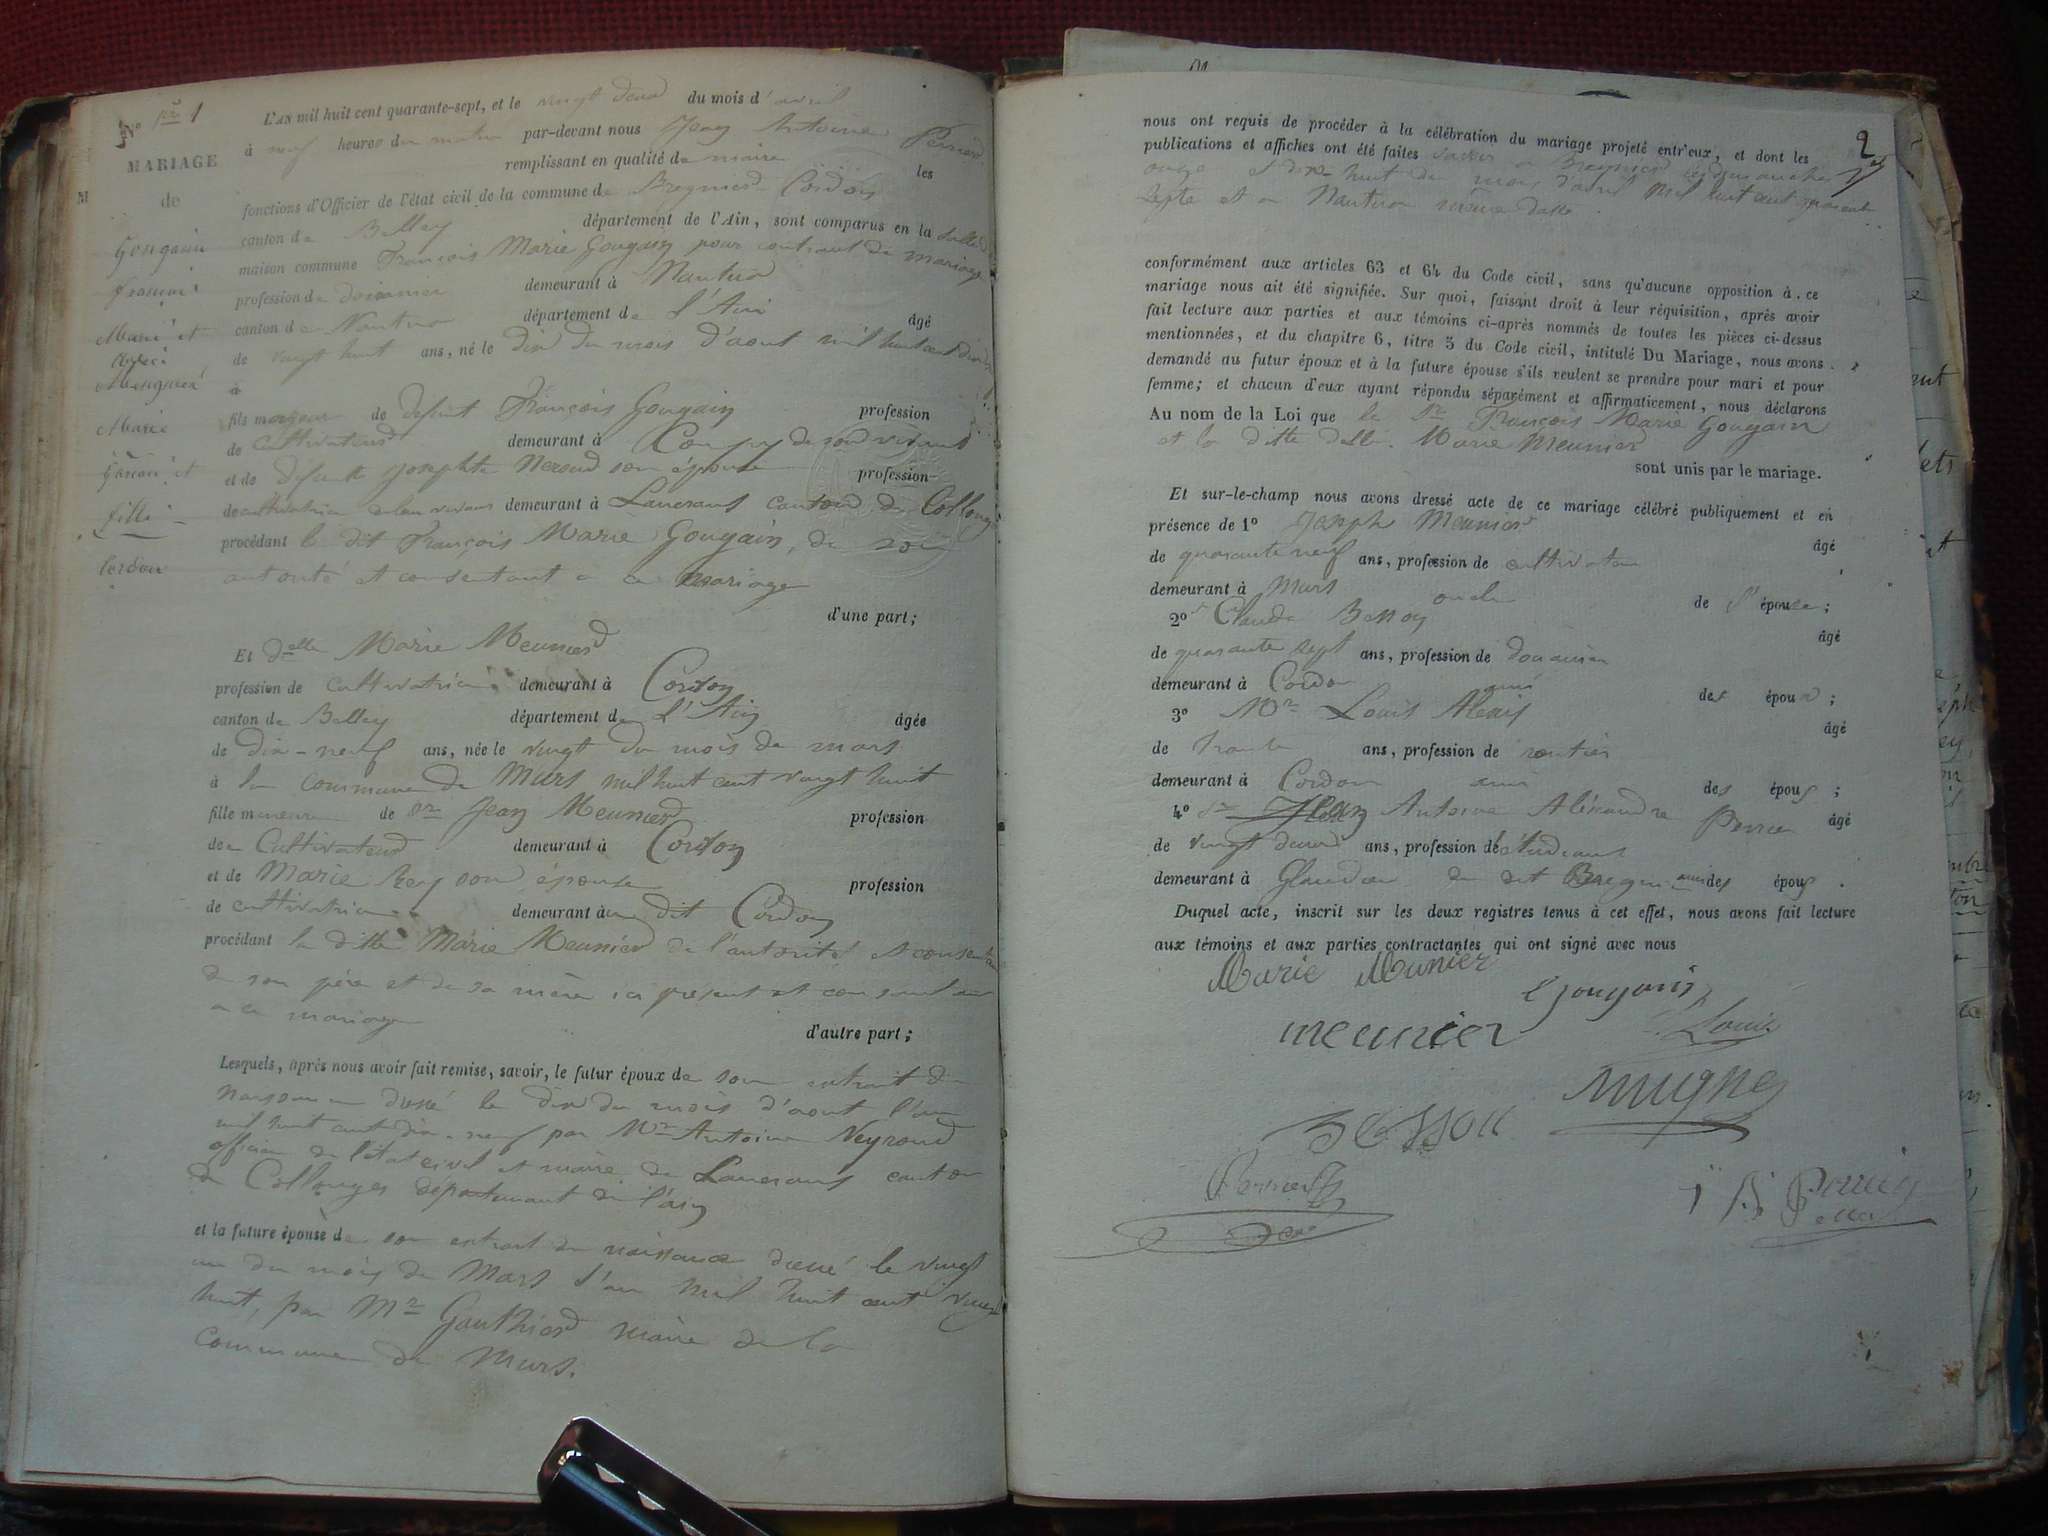 No 1er 1
MARIAGE
de
Gougain
François
Marie et
avec
Meunier
Marie
Garçon et
fille
Cordon
L'AN mil huit cent quarante-sept, et le vingt deux du mois d'avril
à neuf heures du matin par-devant nous Jean Antoine Perrier
remplissant en qualité de maire les
fonctions d'Officier de l'état civil de la commune de Bregnier Cordon
canton de Belley département de l'Ain, sont comparus en la salle de
maison commune François Marie Gougain pour contrant de mariage
profession de douanier demeurant à Nantua
canton de Nantua département de l'Ain âgé
de vingt huit ans, né le dix du mois d'aout mil huit cent dix
à
fils majeur de defunt François Gougain profession
de cultivateur demeurant à de son vivant
et de defunte Josephte Neroud son épouse profession
de cultivatrice de leur vivans demeurant à Lancrans canton de Collonges
procédant le dit François Marie Gougain, de son
autorité et consentant à ce mariage
d'une part;
Et delle Marie Meunier
profession de cultivatrice demeurant à Cordon
canton de Belley département de L'Ain âgée
de dix-neuf ans, née le vingt du mois de mars
à la commune de Murs mil huit cent vingt huit
fille mineure de Sr Jean Meunier profession
de Cultivateur demeurant à Cordon
et de Marie Rey son épouse profession
de cultivatrice demeurant à au dit Cordon
procédant la ditte Marie Meunier de l'autorité et consentement
de son père et de sa mère ici présent et consentant
a ce mariage
d'autre part;
Lesquels, après nous avoir fait remise, savoir, le futur époux de son extrait de
naissance dressé le dix du mois d'aout l'an
mil huit cent dix-neuf par Mr Antoine Neyroud
officier de l'état civil et maire de Lancrans canton
de Collonges département de l'ain
et la future épouse de son extrait de naissance dressé le vingt
un du mois de Mars l'an mil huit cent vingt
huit, par Mr Gauthier maire de la
commune de Murs.
2
nous ont requis de procéder à la célébration du mariage projeté entr'eux, et dont les
publications et affiches ont été faites à Bregnier les dimanches
onze et dix huit du mois d'avril mil huit cent quarante
septe et a Nantua même datte.
conformément aux articles 63 et 64 du Code civil, sans qu'aucune opposition à ce
mariage nous ait été signifiée. Sur quoi, faisant droit à leur réquisition, après avoir
fait lecture aux parties et aux témoins ci-après nommés de toutes les pièces ci-dessus
mentionnées, et du chapitre 6, titre 5 du Code civil, intitulé Du Mariage, nous avons
demandé au futur époux et à la future épouse s'ils veulent se prendre pour mari et pour
femme; et chacun d'eux ayant répondu séparément et affirmativement, nous déclarons
Au nom de la Loi que le Sr François Marie Gougain
et la ditte delle. Marie Meunier
sont unis par le mariage.
Et sur-le-champ nous avons dressé acte de ce mariage célébré publiquement et en
présence de 1o Joseph Meunier
âgé
de quarante neuf ans, profession de cultivateur
demeurant à Murs oncle de l'épouse;
2o Claude Besson
âgé
de quarante sept ans, profession de douanier
demeurant à Cordon ami des époux;
3o Mr Louis Alexis
âgé
de trente ans, profession de rentier
demeurant à Cordon ami des époux;
4o Sr Jean Antoine Aléxandre Perrier âgé
de vingt deux ans, profession d'étudiant
demeurant à Glandieu du dit Bregnier ami des époux.
Duquel acte, inscrit sur les deux registres tenus à cet effet, nous avons fait lecture
aux témoins et aux parties contractantes qui ont signé avec nous
Marie Munier
Gougain
meunier
Louis
mugne
Besson
Perrier
Perrier